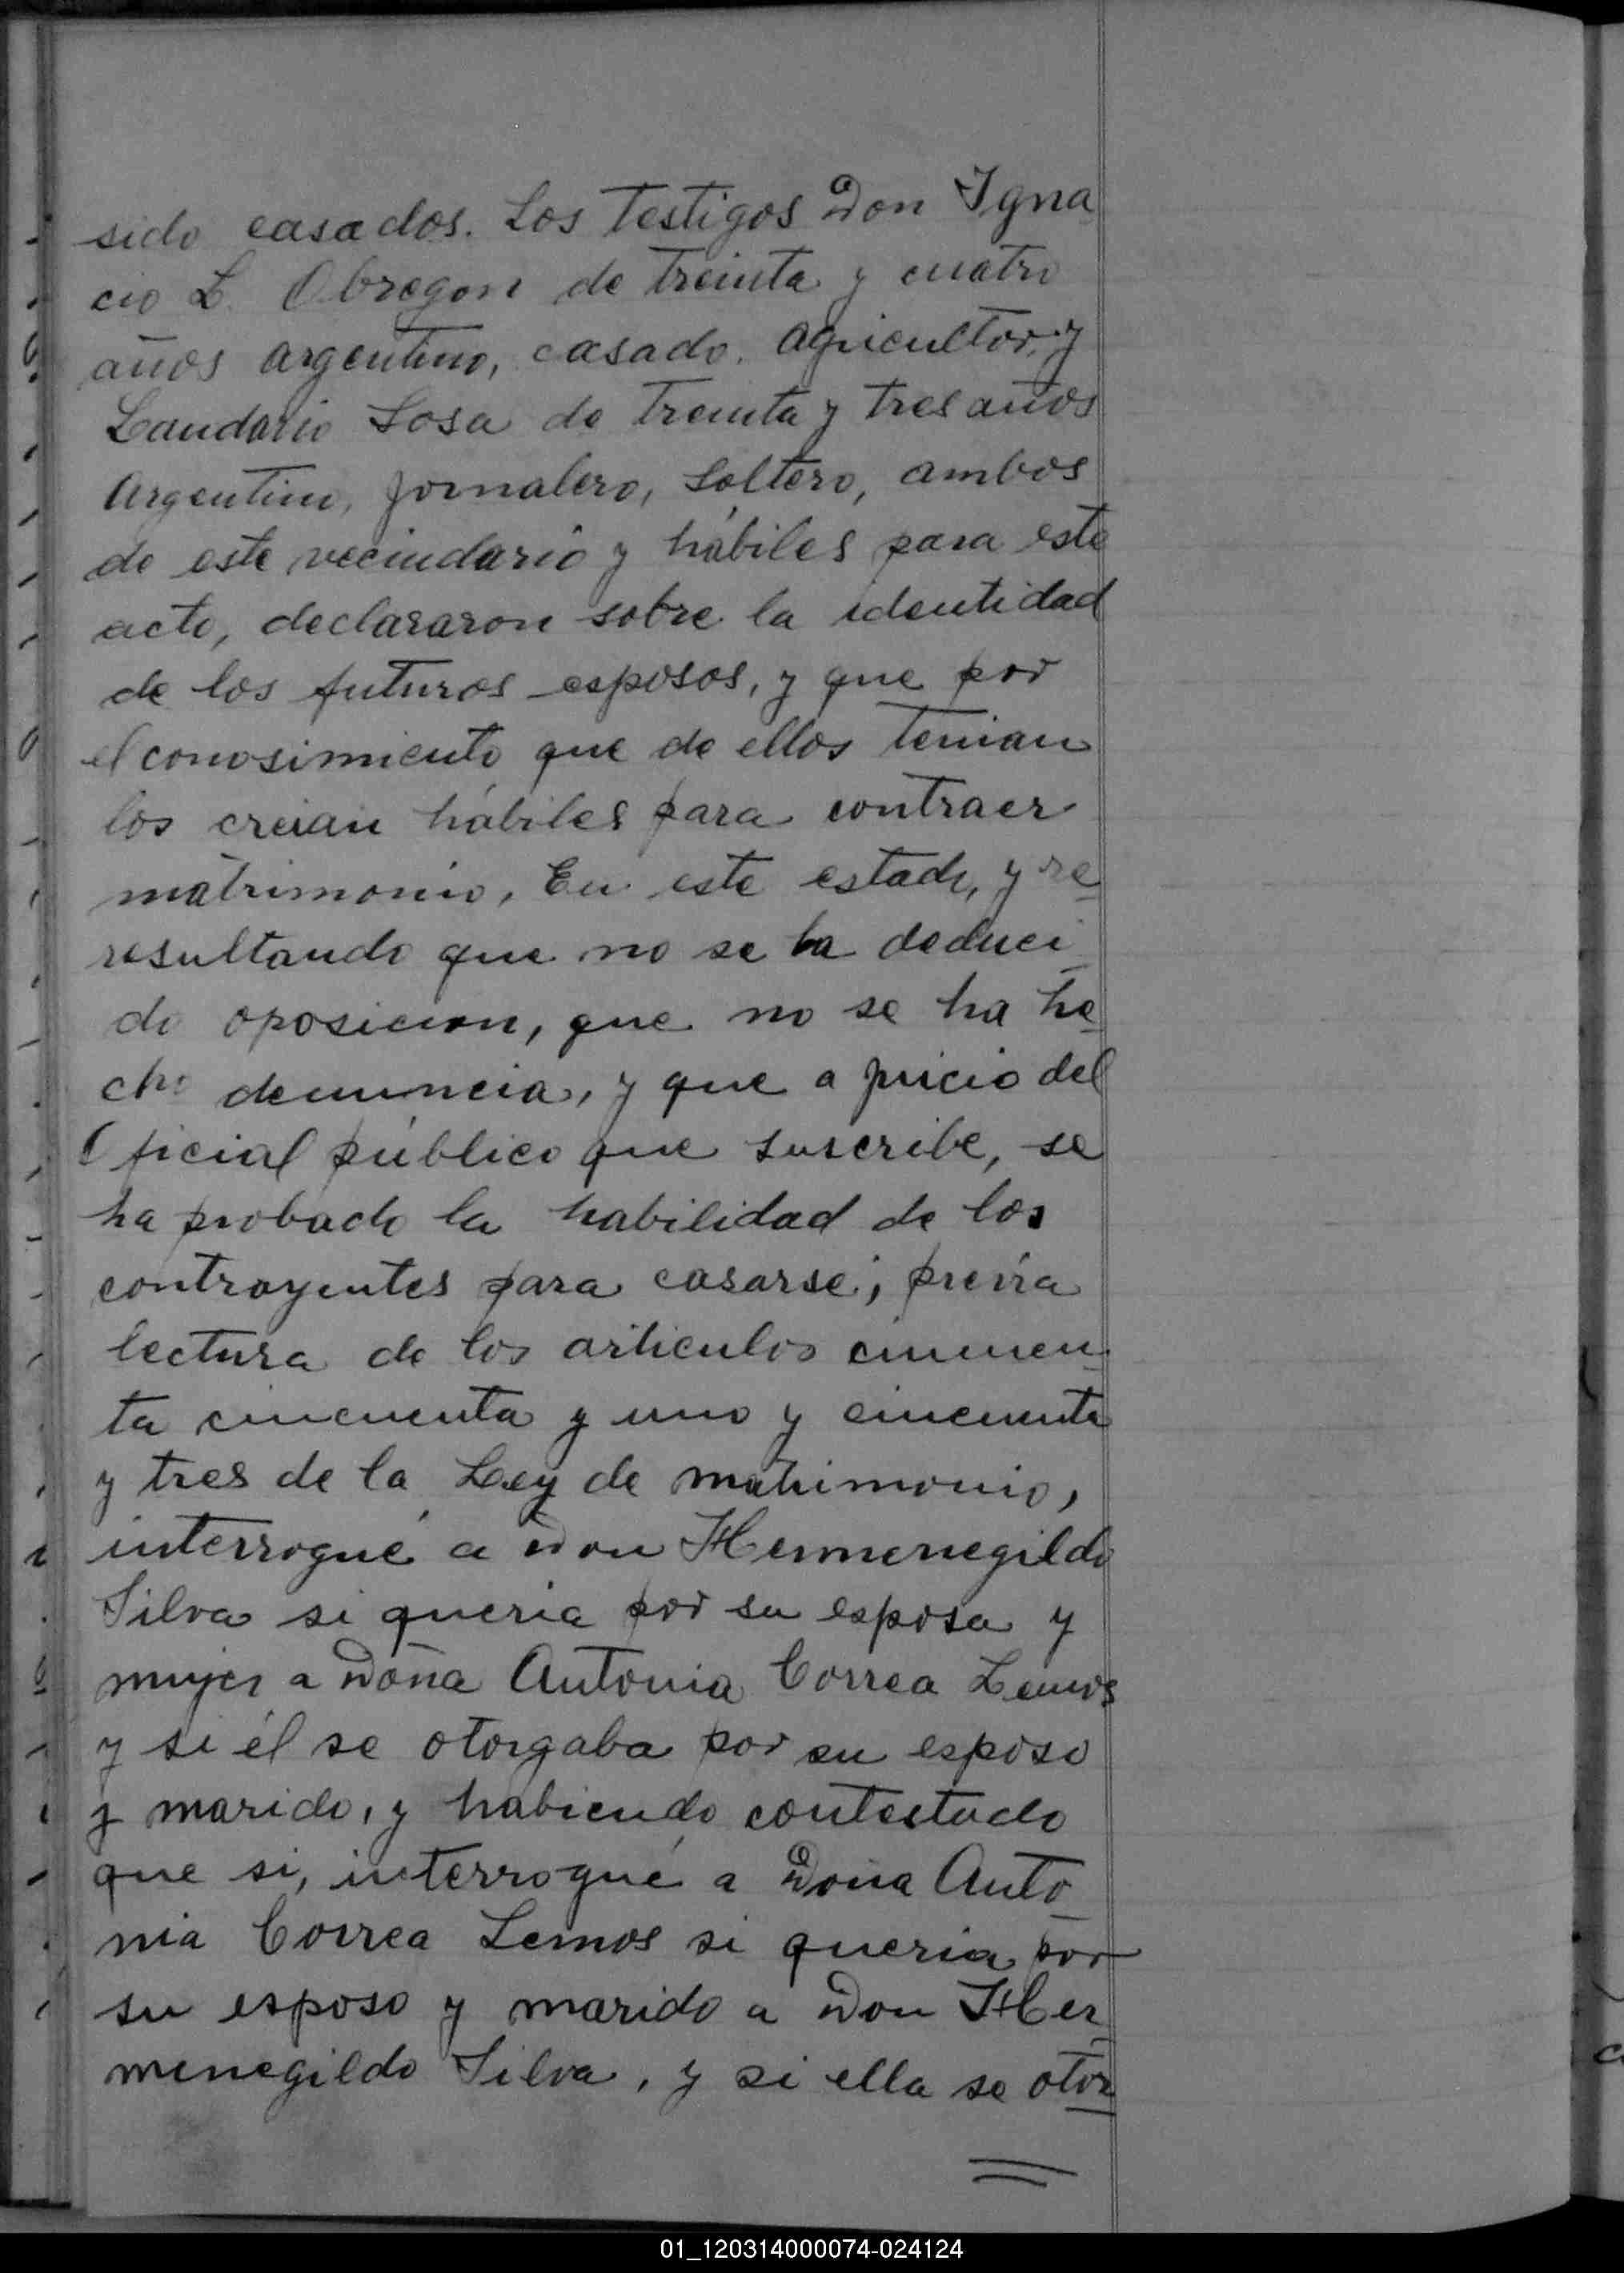 sido casados. Los Testigos Don Igna
cio L. Obregon de treinta y cuatro
años argentino, casado. agricultor, y
Laudario Sosa de treinta y tres años
argentino, jornalero, soltero, ambos
de este vecindario y hábiles para este
acto, declararon sobre la identidad
de los futuros esposos, y que por
el conosimiento que de ellos tenian
los creian hábiles para contraer
matrimonio, En este estado, y re
resultando que no se ha deduci
do oposicion, que no se ha he
cho denuncia, y que a juicio del
Oficial público que suscribe, se
ha probado la habilidad de los
contrayentes para casarse; previa
lectura de los articulos cincuen
ta cincuenta y uno y cincuenta
y tres de la Ley de matrimonio,
interrogué a Don Hermenegildo
Silva si queria por su esposa y
mujer a Doña Antonia Correa Lemos
y si él se otorgaba por su esposo
y marido, y habiendo contestado
que si, interrogué a Doña Anto
nia Correa Lemos si queria por
su esposo y marido a Don Her
menegildo Silva, y si ella se otor
01_120314000074-024124